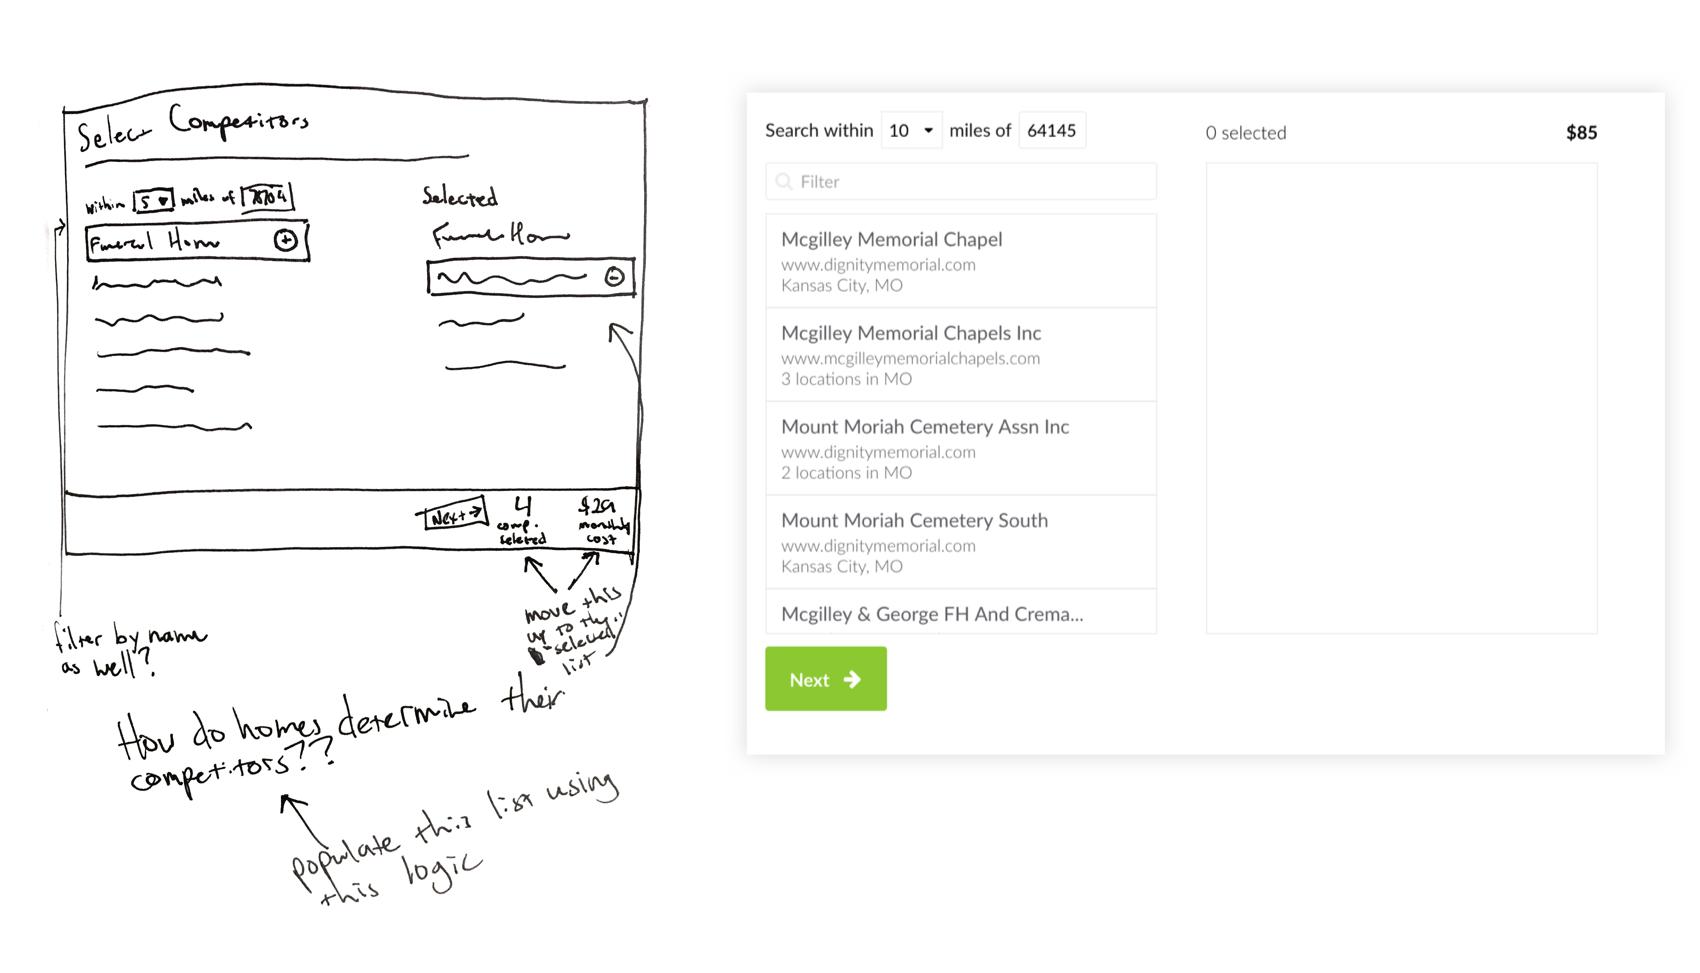 Select Competitors
within 5 miles of 78704
Funeral Home
Selected
Funeral Home
Next →
4
comp.
selected
$29
monthly
cost
move this
up to the
selected
list
filter by name
as well?
How do homes determine their
competitors??
populate this list using
this logic
Search within 10 miles of 64145
Filter
Mcgilley Memorial Chapel
www.dignitymemorial.com
Kansas City, MO
Mcgilley Memorial Chapels Inc
www.mcgilleymemorialchapels.com
3 locations in MO
Mount Moriah Cemetery Assn Inc
www.dignitymemorial.com
2 locations in MO
Mount Moriah Cemetery South
www.dignitymemorial.com
Kansas City, MO
Mcgilley & George FH And Crema...
Next
0 selected
$85